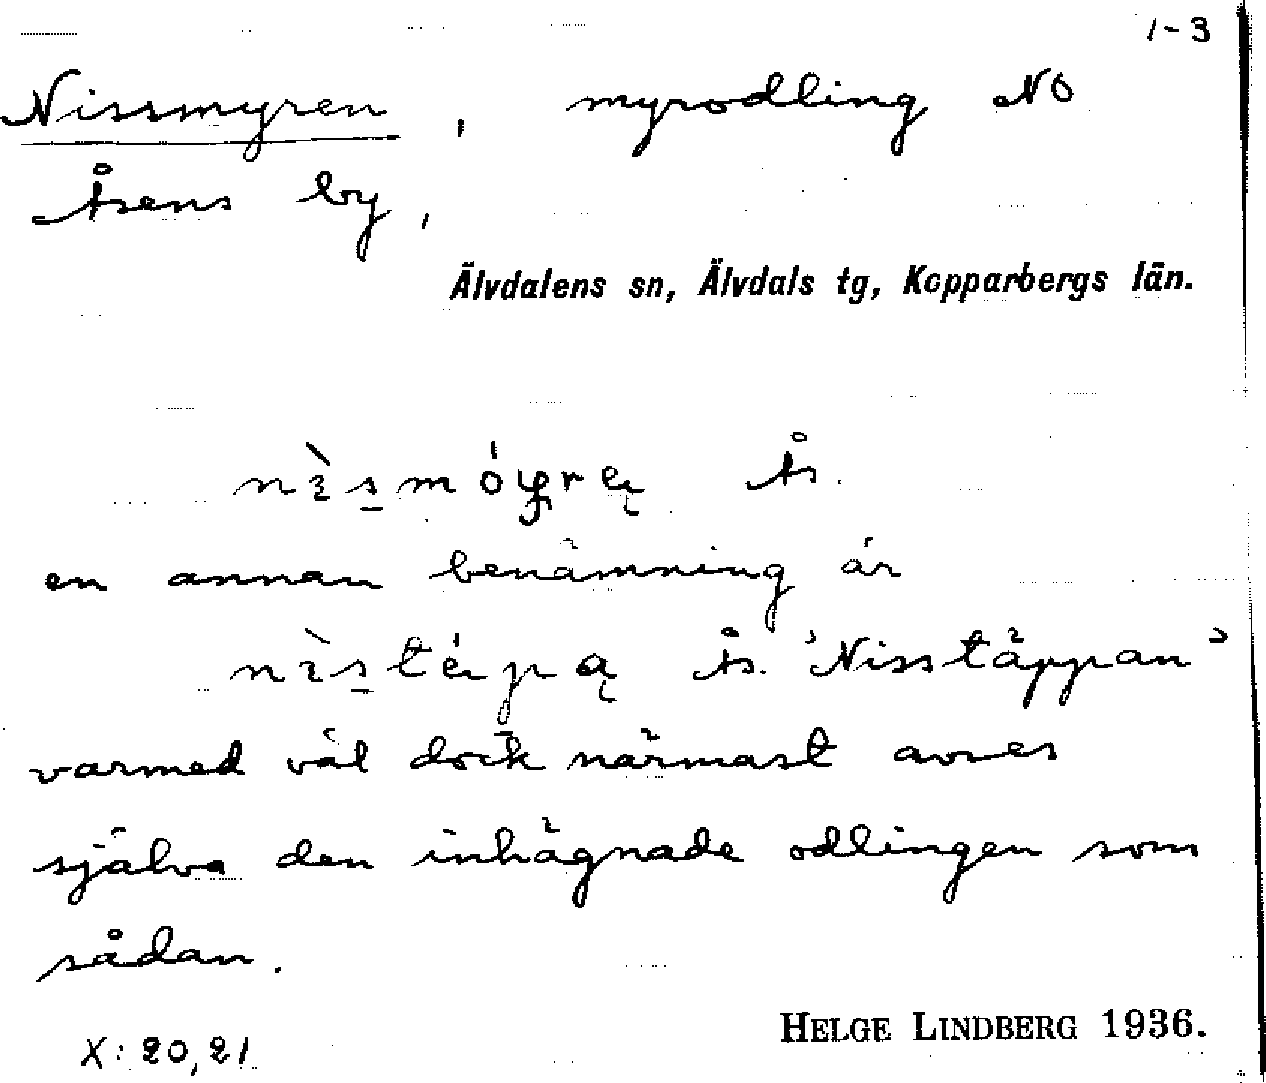 1-3
Nissmyren, myrodling NO
Åsens by,
Älvdalens sn, Älvdals tg, Kopparbergs län.
Ås.
en annan benämning är
Ås. 'Nisstäppan'
varmed väl dock närmast avses
själva den inhägnade odlingen som
sådan.
HELGE LINDBERG 1936.
X: 20, 21